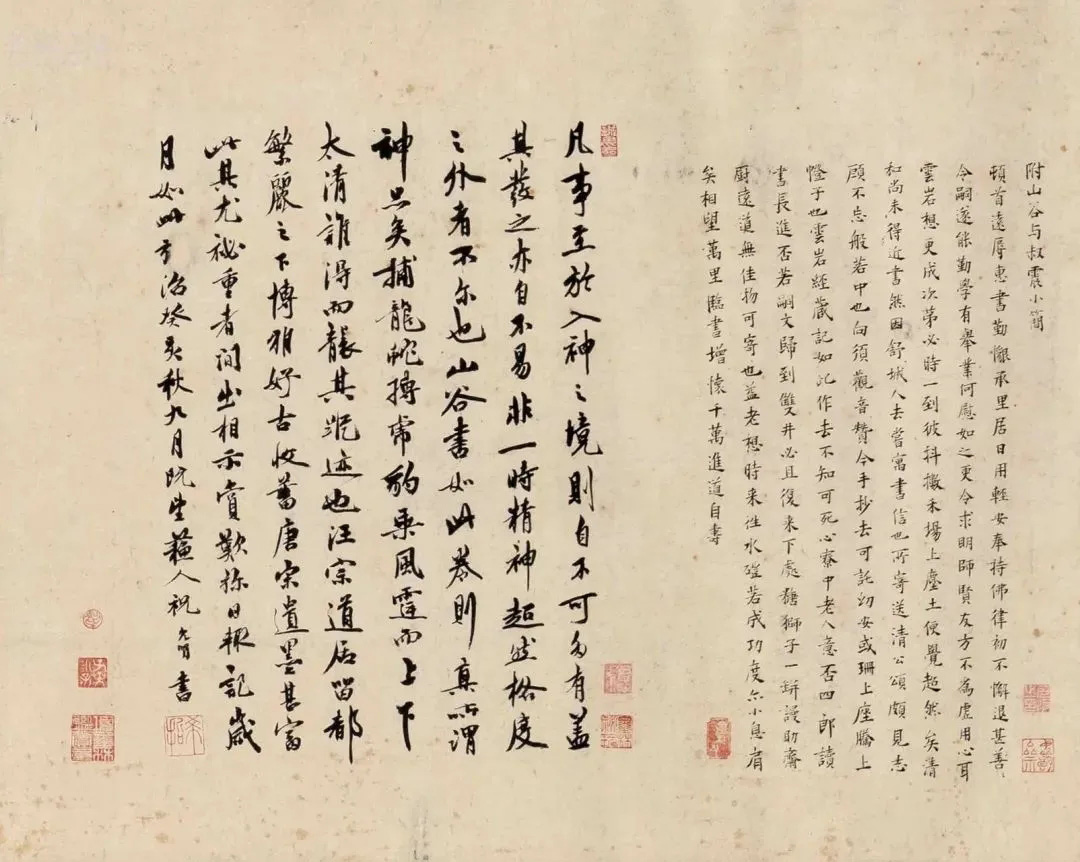 附山谷与叔震小简
頓首遠辱惠書勤懇承里居日用輕安奉持佛律初不懈退甚善
令嗣遂能勤學有舉業何慰如之更令求明師賢友方不為虛用心耳
雲岩想更成次第必時一到彼抖擻禾場上塵土便覺超然矣清
和尚未得近書然因舒城人去嘗寓書信也所寄送清公頌頗見志
願不忘般若中也向須觀音贊今手抄去可託幼安或珊上座騰上
燈子也雲岩經藏記如此作去不知可死心寮中老人意否四郎讀
書長進否若嗣文歸到雙井必且復来下處糖獅子一缾謾助齋
厨遠道無佳物可寄也益老想時来往水磑若成功度亦小息肩
矣相望萬里臨書增懷千萬進道自壽
凡事至於入神之境則自不可多有蓋
其發之亦自不易非一時精神超然格度
之外者不尔也山谷書如此卷則真所謂
神品矣捕龍蛇搏虎豹乘風霆而上下
太清誰得而襲其涯迹也汪宗道居留都
繁麗之下博雅好古收蓄唐宋遺墨甚富
此其尤祕重者間出相示賞歎弥日輒記歲
月如此弘治癸亥秋九月既望蘇人祝允明書